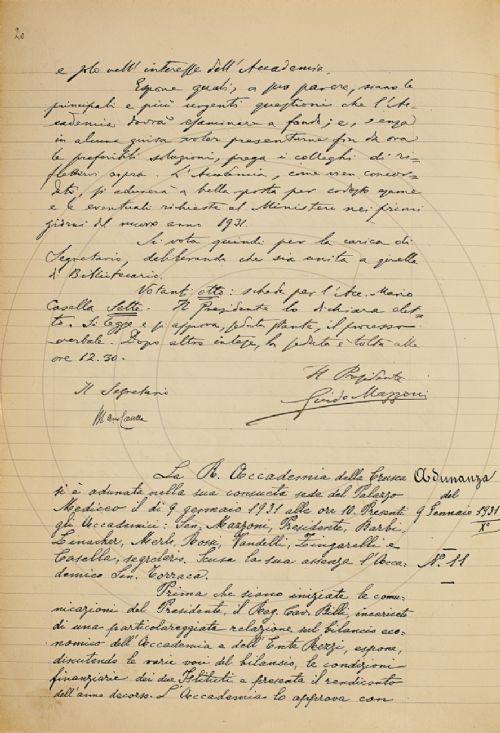 20
e solo nell' interesse dell' Accademia.
Espone quali, a suo parere, siano le
principali e più urgenti questioni che l'Ac-
cademia dovrà esaminare a fondo; e, senza
in alcuna guisa voler presentarne fin da ora
le preferibili soluzioni, prega i colleghi di ri-
flettervi sopra. L'Accademia, come vien concor-
dato, si adunerà a bella posta per codesto esame
e le eventuali richieste al Ministero nei primi
giorni del nuovo anno 1931.
Si vota quindi per la carica di
Segretario, deliberando che sia unita a quella
di Bibliotecario.
Votanti otto: schede per l'Acc. Mario
Casella sette. Il Presidente lo dichiara elet-
to. Si legge e si approva, seduta stante, il processo
verbale. Dopo altre intese, la seduta è tolta alle
ore 12.30.
Il Presidente
Il Segretario
Guido Mazzoni
Mario Casella
La R. Accademia della Crusca
si è adunata nella sua consueta sede del Palazzo
Mediceo il dì 9 gennaio 1931 alle ore 10. Presenti
gli Accademici: Sen. Mazzoni, Presidente, Barbi
Linaker, Merlo, Rossi, Vandelli, Zingarelli e
Casella, segretario. Scusa la sua assenza l'Acca-
demico Sen. Torraca.
Adunanza
del
9 Gennaio 1931
X°
N. 11
Prima che siano iniziate le comu-
nicazioni del Presidente, il Rag. Cav. Billi, incaricato
di una particolareggiata relazione sul bilancio eco-
nomico dell'Accademia e dell'Ente Rezzi, espone,
discutendo le varie voci del bilancio, le condizioni
finanziarie dei due Istituti e presenta il rendiconto
dell'anno decorso. L'Accademia lo approva con